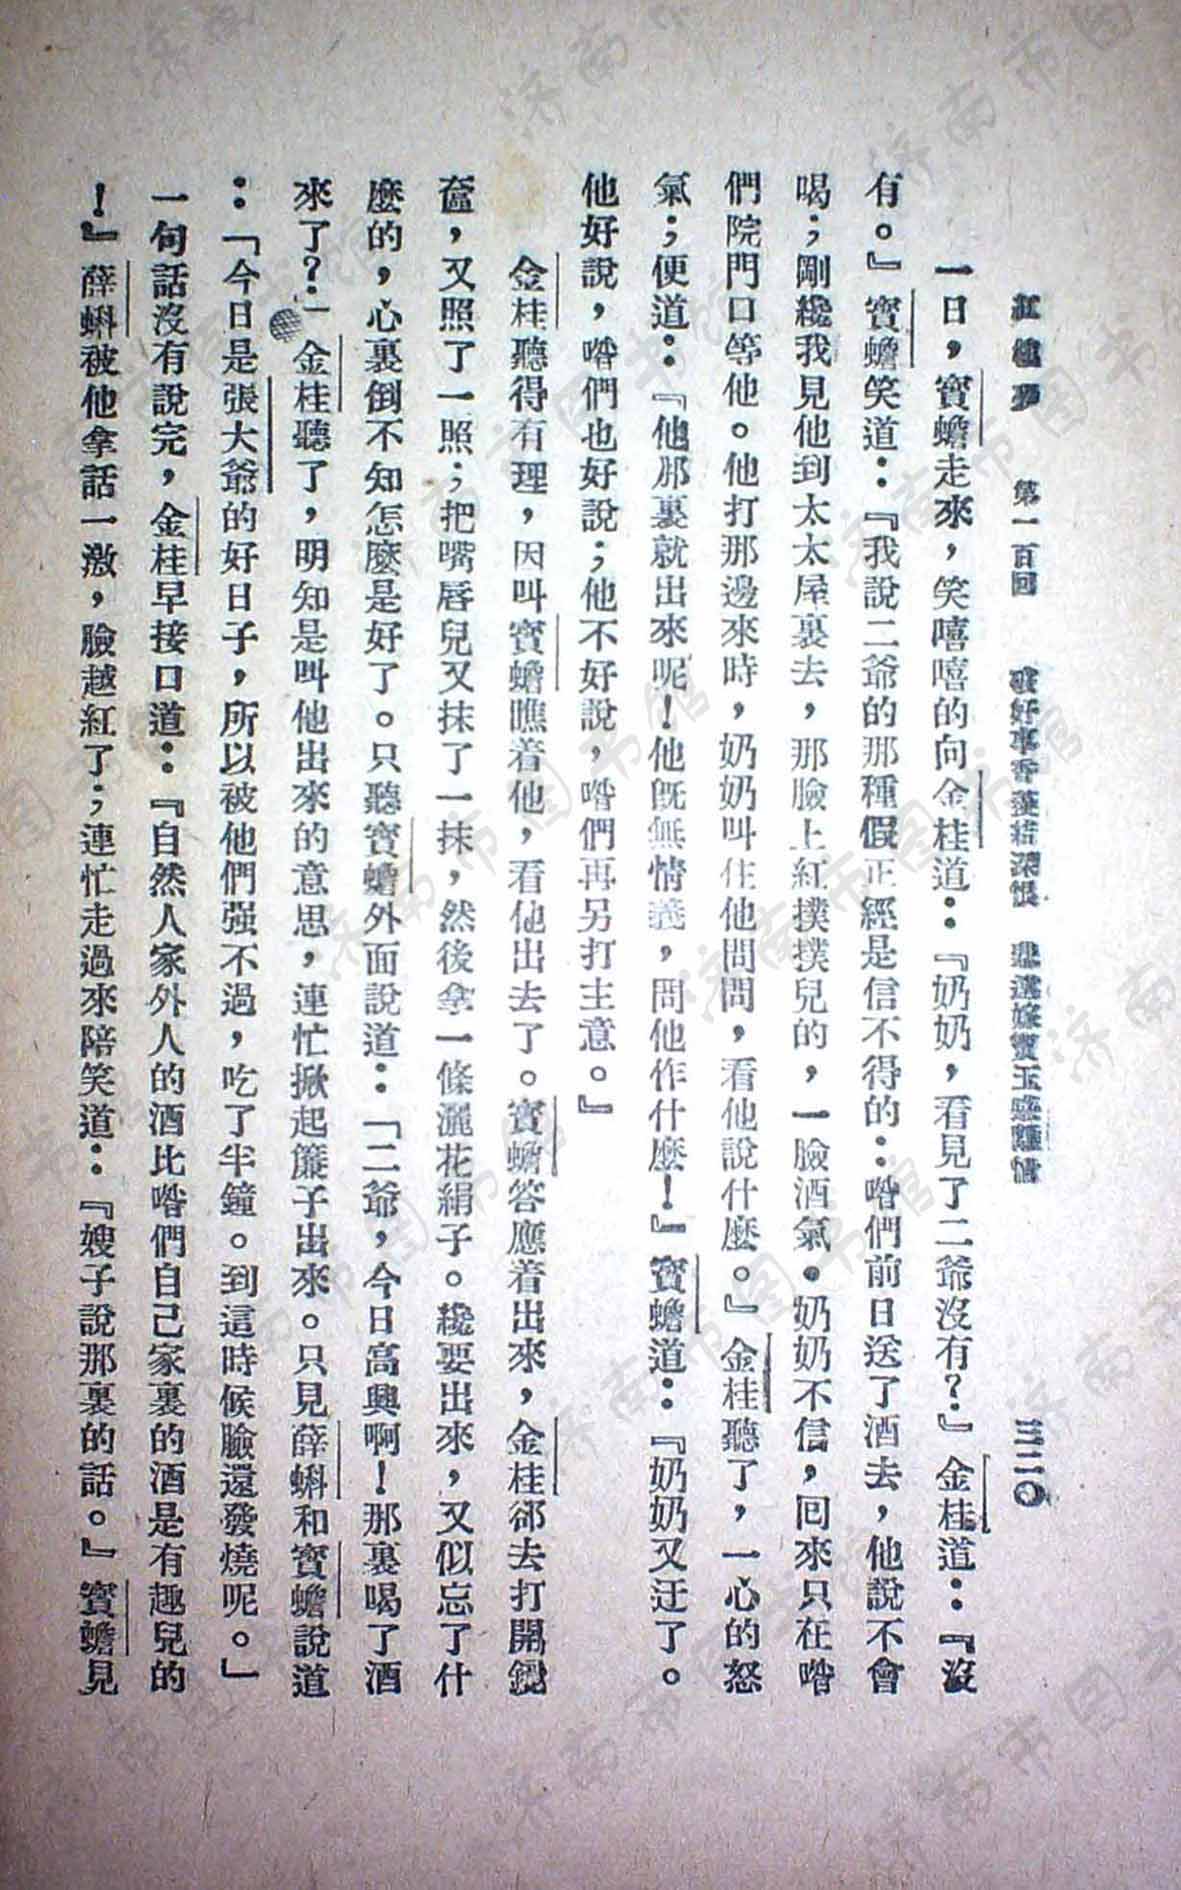 紅樓夢　第一百回　破好事香菱結深恨　悲遠嫁寶玉感離情　三二〇
一日，寶蟾走來，笑嘻嘻的向金桂道：『奶奶，看見了二爺沒有？』金桂道：『沒
有。』寶蟾笑道：『我說二爺的那種假正經是信不得的：喒們前日送了酒去，他說不會
喝；剛纔我見他到太太屋裏去，那臉上紅撲撲兒的，一臉酒氣。奶奶不信，回來只在喒
們院門口等他。他打那邊來時，奶奶叫住他問問，看他說什麼。』金桂聽了，一心的怒
氣；便道：『他那裏就出來呢！他旣無情義，問他作什麼！』寶蟾道：『奶奶又迂了。
他好說，喒們也好說；他不好說，喒們再另打主意。』
金桂聽得有理，因叫寶蟾瞧着他，看他出去了。寶蟾答應着出來，金桂郤去打開鏡
奩，又照了一照；把嘴唇兒又抹了一抹，然後拿一條灑花絹子。纔要出來，又似忘了什
麼的，心裏倒不知怎麼是好了。只聽寶蟾外面說道：「二爺，今日高興啊！那裏喝了酒
來了？」金桂聽了，明知是叫他出來的意思，連忙掀起簾子出來。只見薛蝌和寶蟾說道
：「今日是張大爺的好日子，所以被他們强不過，吃了半鐘。到這時候臉還發燒呢。」
一句話沒有說完，金桂早接口道：『自然人家外人的酒比喒們自己家裏的酒是有趣兒的
！』薛蝌被他拿話一激，臉越紅了；連忙走過來陪笑道：『嫂子說那裏的話。』寶蟾見
济南市图书馆